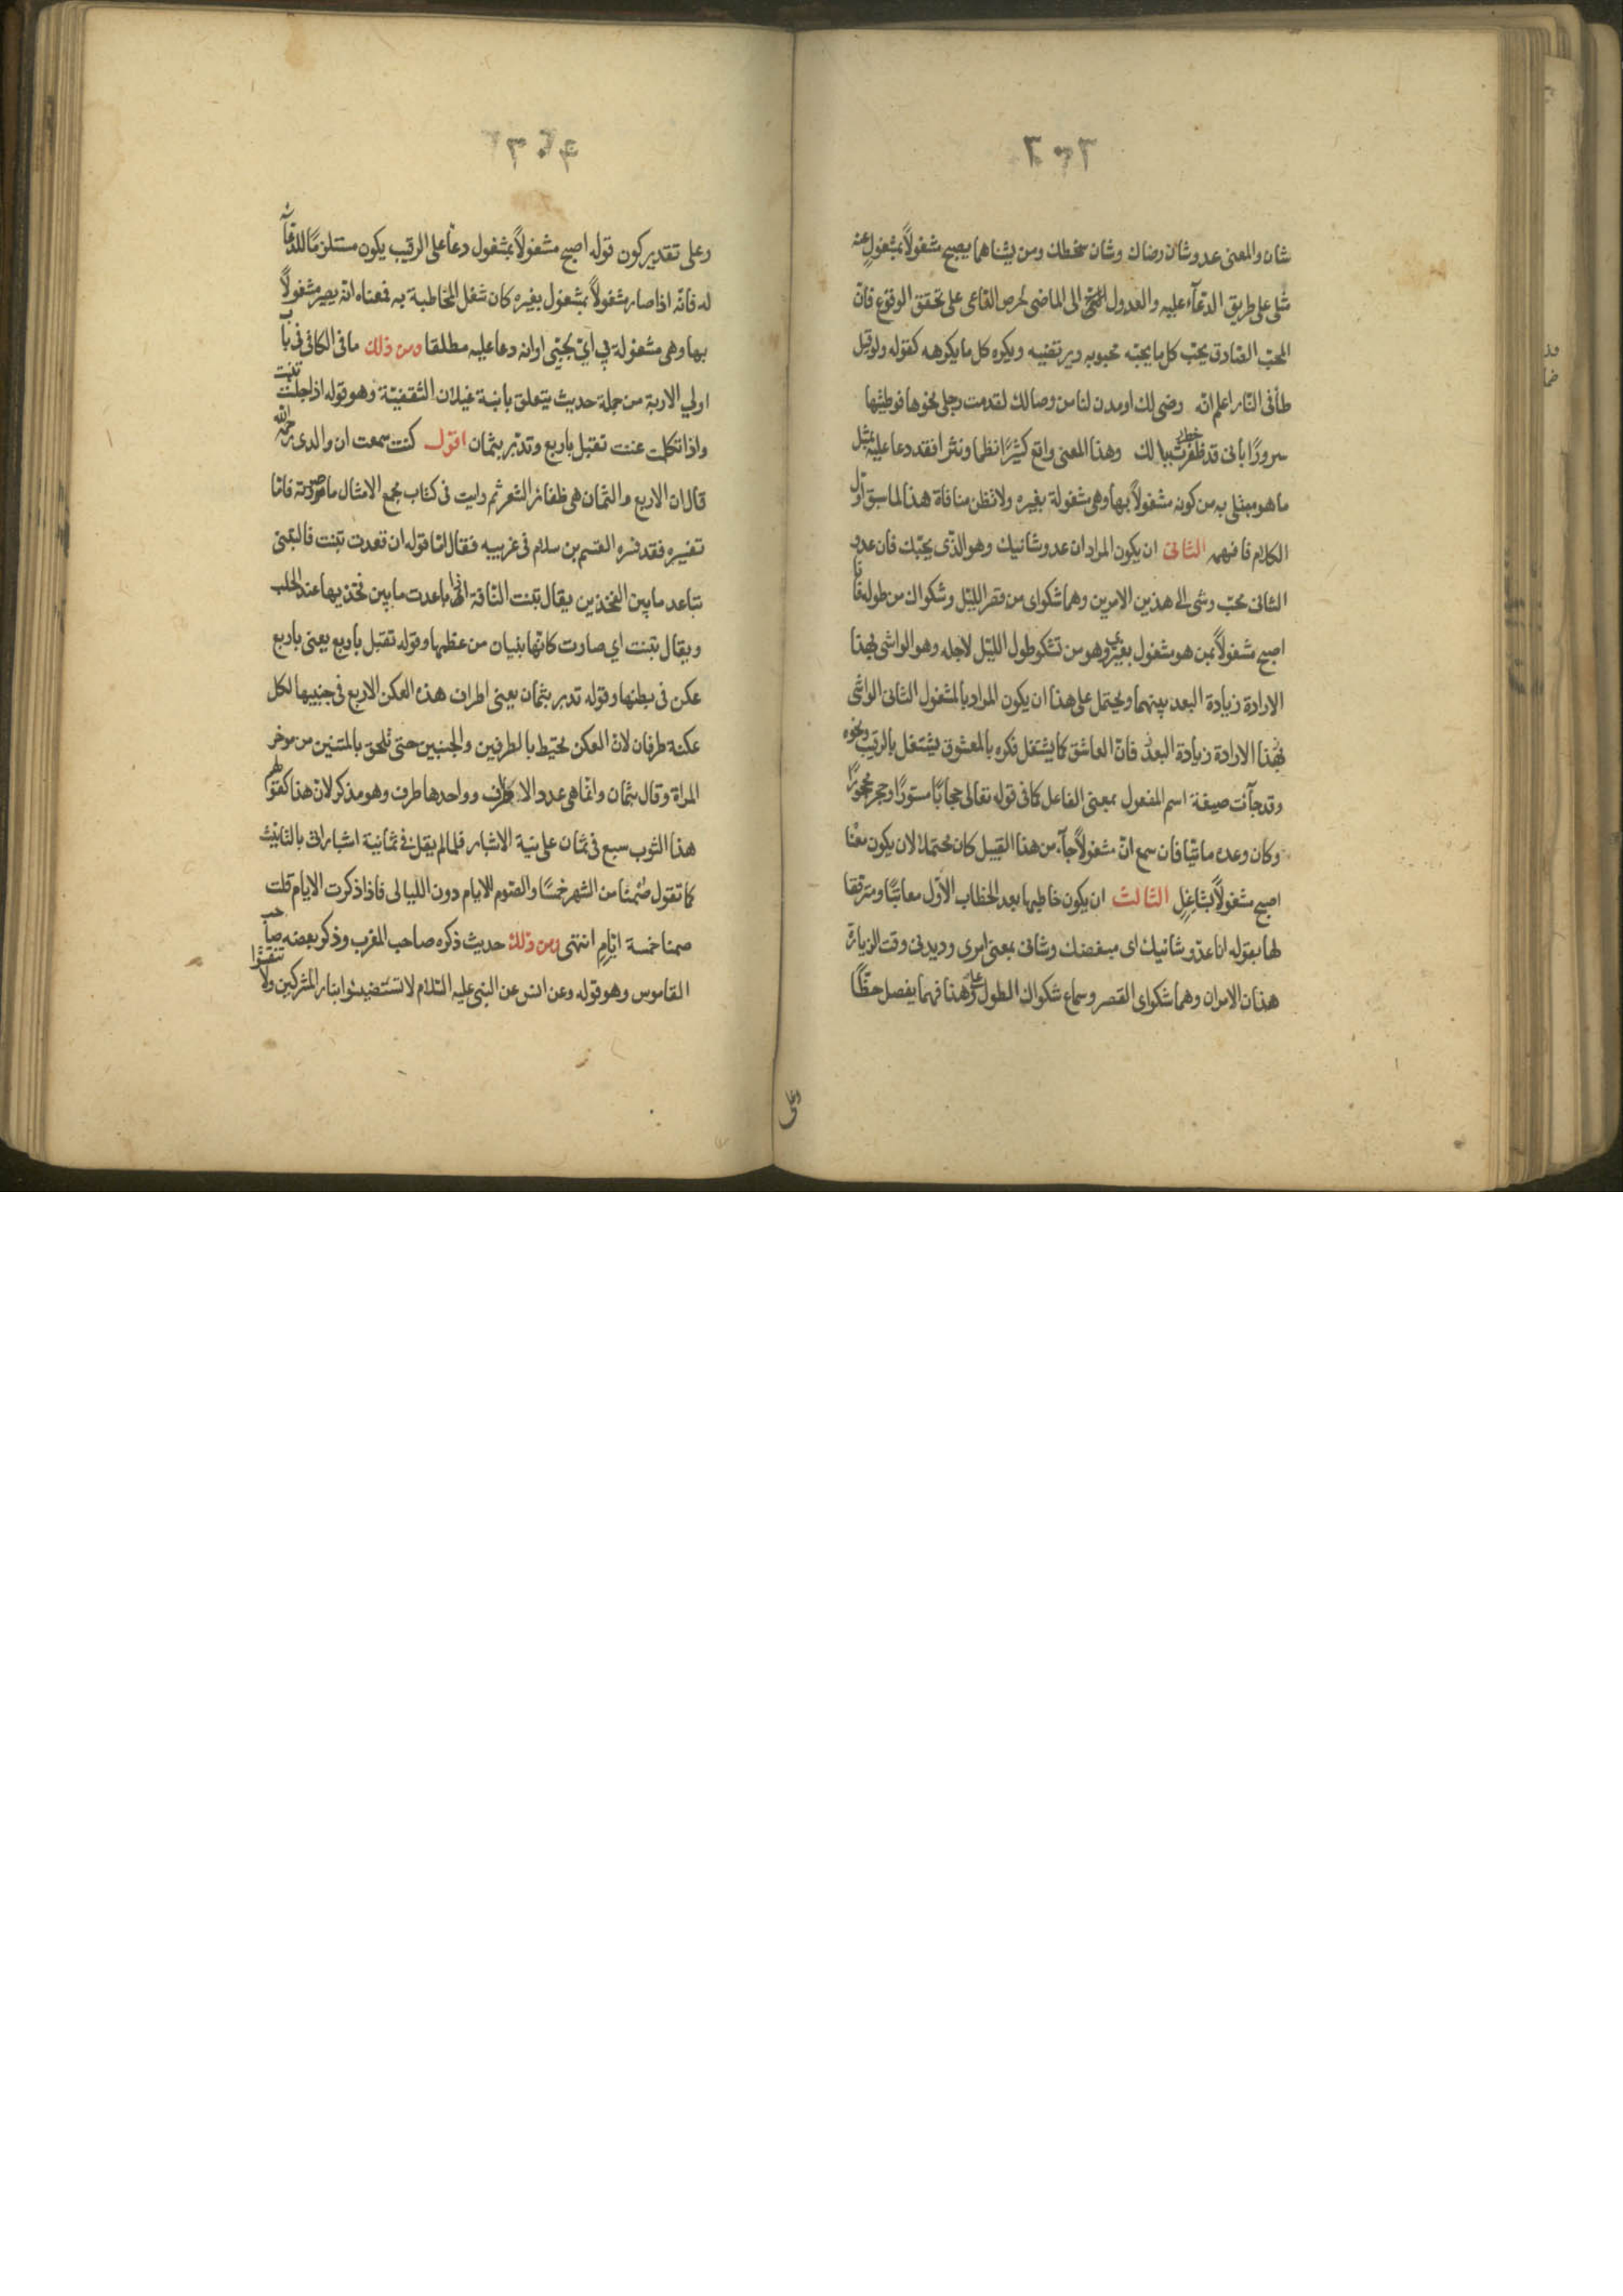 ٣٠٣
شان والمعنى عدو شان رضاك وشان سخطك ومن يشناهما يصبح مشغولاً بمشغولٍ عنه
مثلى على طريق الدعآء عليه والعدول الى الماضى لحرص الداعى على تحقق الوقوع فانّ
المحبّ الصّادق يحبّ كل ما يحبّه محبوبه ويرتضيه ويكره كل ما يكرهه كقوله ولو قيل
طأ فى النّار اعلم انّه رضى لك او مدن لنا من وصالك لقدمت رجلى نحوها فوطئتها
سرورًا بانى قد خطرت ببالك وهذا المعنى واقع كثيرًا نظما ونثرا فقد دعا عليه بمثل
ما هو مبتلى به من كونه مشغولاً بها وهى مشغولة بغيره ولا تظن منافاة هذا لما سبق اوّل
الكلام فافهم الثانى ان يكون المراد ان عدو شانيك وهو الذّى يحبّك فان عدو
الثانى محبّ وشى الى هذين الامرين وهما شكواى من قصر الليّل وشكواك من طوله
اصبح مشغولاً بمن هو مشغول بغيره وهو من تشكو طول الليّل لاجله وهو الواشى بهذا
الارادة زيادة البعد بينهما ويحتمل على هذا ان يكون المراد بالمشغول الثانى الواشى
بهذا الارادة زيادة البعد فانّ العاشق كما يشتغل فكره بالمعشوق يشتغل بالرقيب ونحوه
وقد جآئت صيغة اسم المفعول بمعنى الفاعل كما فى قوله تعالى حجابًا مستورًا وحجرًا محجورًا
وكان وعده ماتيّا فان سمع انّ مشغولاً جآء من هذا القبيل كان محتملا لان يكون معنا
اصبح مشغولاً بشاغلٍ الثالث ان يكون خاطبها بعد الخطاب الاوّل معاتبًا ومترفقا
لها بقوله انا عدّو شانيك اى مبغضك وشانى بمعنى امرى وديدنى وقت الزيارة
هذان الامران وهما شكواى القصر وسماع شكواك الطول وعلى هذا فهما يفصل حظًّا
وعلى
٣٠٤
وعلى تقدير كون قوله اصبح مشغولاً بمشغول دعا على الرقيب يكون مستلزمًا للدّعآء
له فانّه اذا صار مشغولاً بمشغول بغيره كان شغل المخاطبة به فمعناه انّه يصير مشغولاً
بها وهى مشغولة بى اى بحبّى او انه دعا عليه مطلقا ومن ذلك ما فى الكافى فى باب
اولي الاربة من جملة حديث يتعلق بابنة غيلان الثقفيّة وهو قوله اذا جلست تبنت
واذا تكلمت غنت تقبل باربع وتدبّر بثمان اقول كنت سمعت ان والدى رحمه الله
قال ان الاربع والثمان هى ظفائر الشعر ثم رايت فى كتاب مجمع الامثال ما صورته فامّا
تفسيره فقد فسره القسم بن سلام فى غريبه فقال امّا قوله ان قعدت تبنت فالتبنى
تباعد ما بين الفخذين يقال تبنت النّاقة اذا باعدت ما بين فخذيها عند الحلب
ويقال تبنت اي صارت كانّها بنيان من عظمها وقوله تقبل باربع يعنى باربع
عكن فى بطنها وقوله تدبر بثمان يعنى اطراف هذه العكن الاربع فى جنبيها لكل
عكنة طرفان لانّ العكن تحيط بالطرفين والجنبين حتى تلحق بالمتنين من موخر
المراة وقال بثمان وانّما هى عدد الاطراف وواحدها طرف وهو مذكر لانّ هذا كقولهم
هذا الثوب سبع فى ثمان على نية الاشبار فلما لم يقل فى ثمانية اشبار اتى بالتانيث
كما تقول صُمنا من الشهر خمسًا والصّوم للايام دون الليالى فاذا ذكرت الايام قلت
صمنا خمسة ايّام انتهى ومن ذلك حديث ذكره صاحب المغرب وذكر بعضه صاحب
القاموس وهو قوله وعن انس عن النبى عليه السّلام لا تستضيئوا بنار المشركين ولا تنقشوا